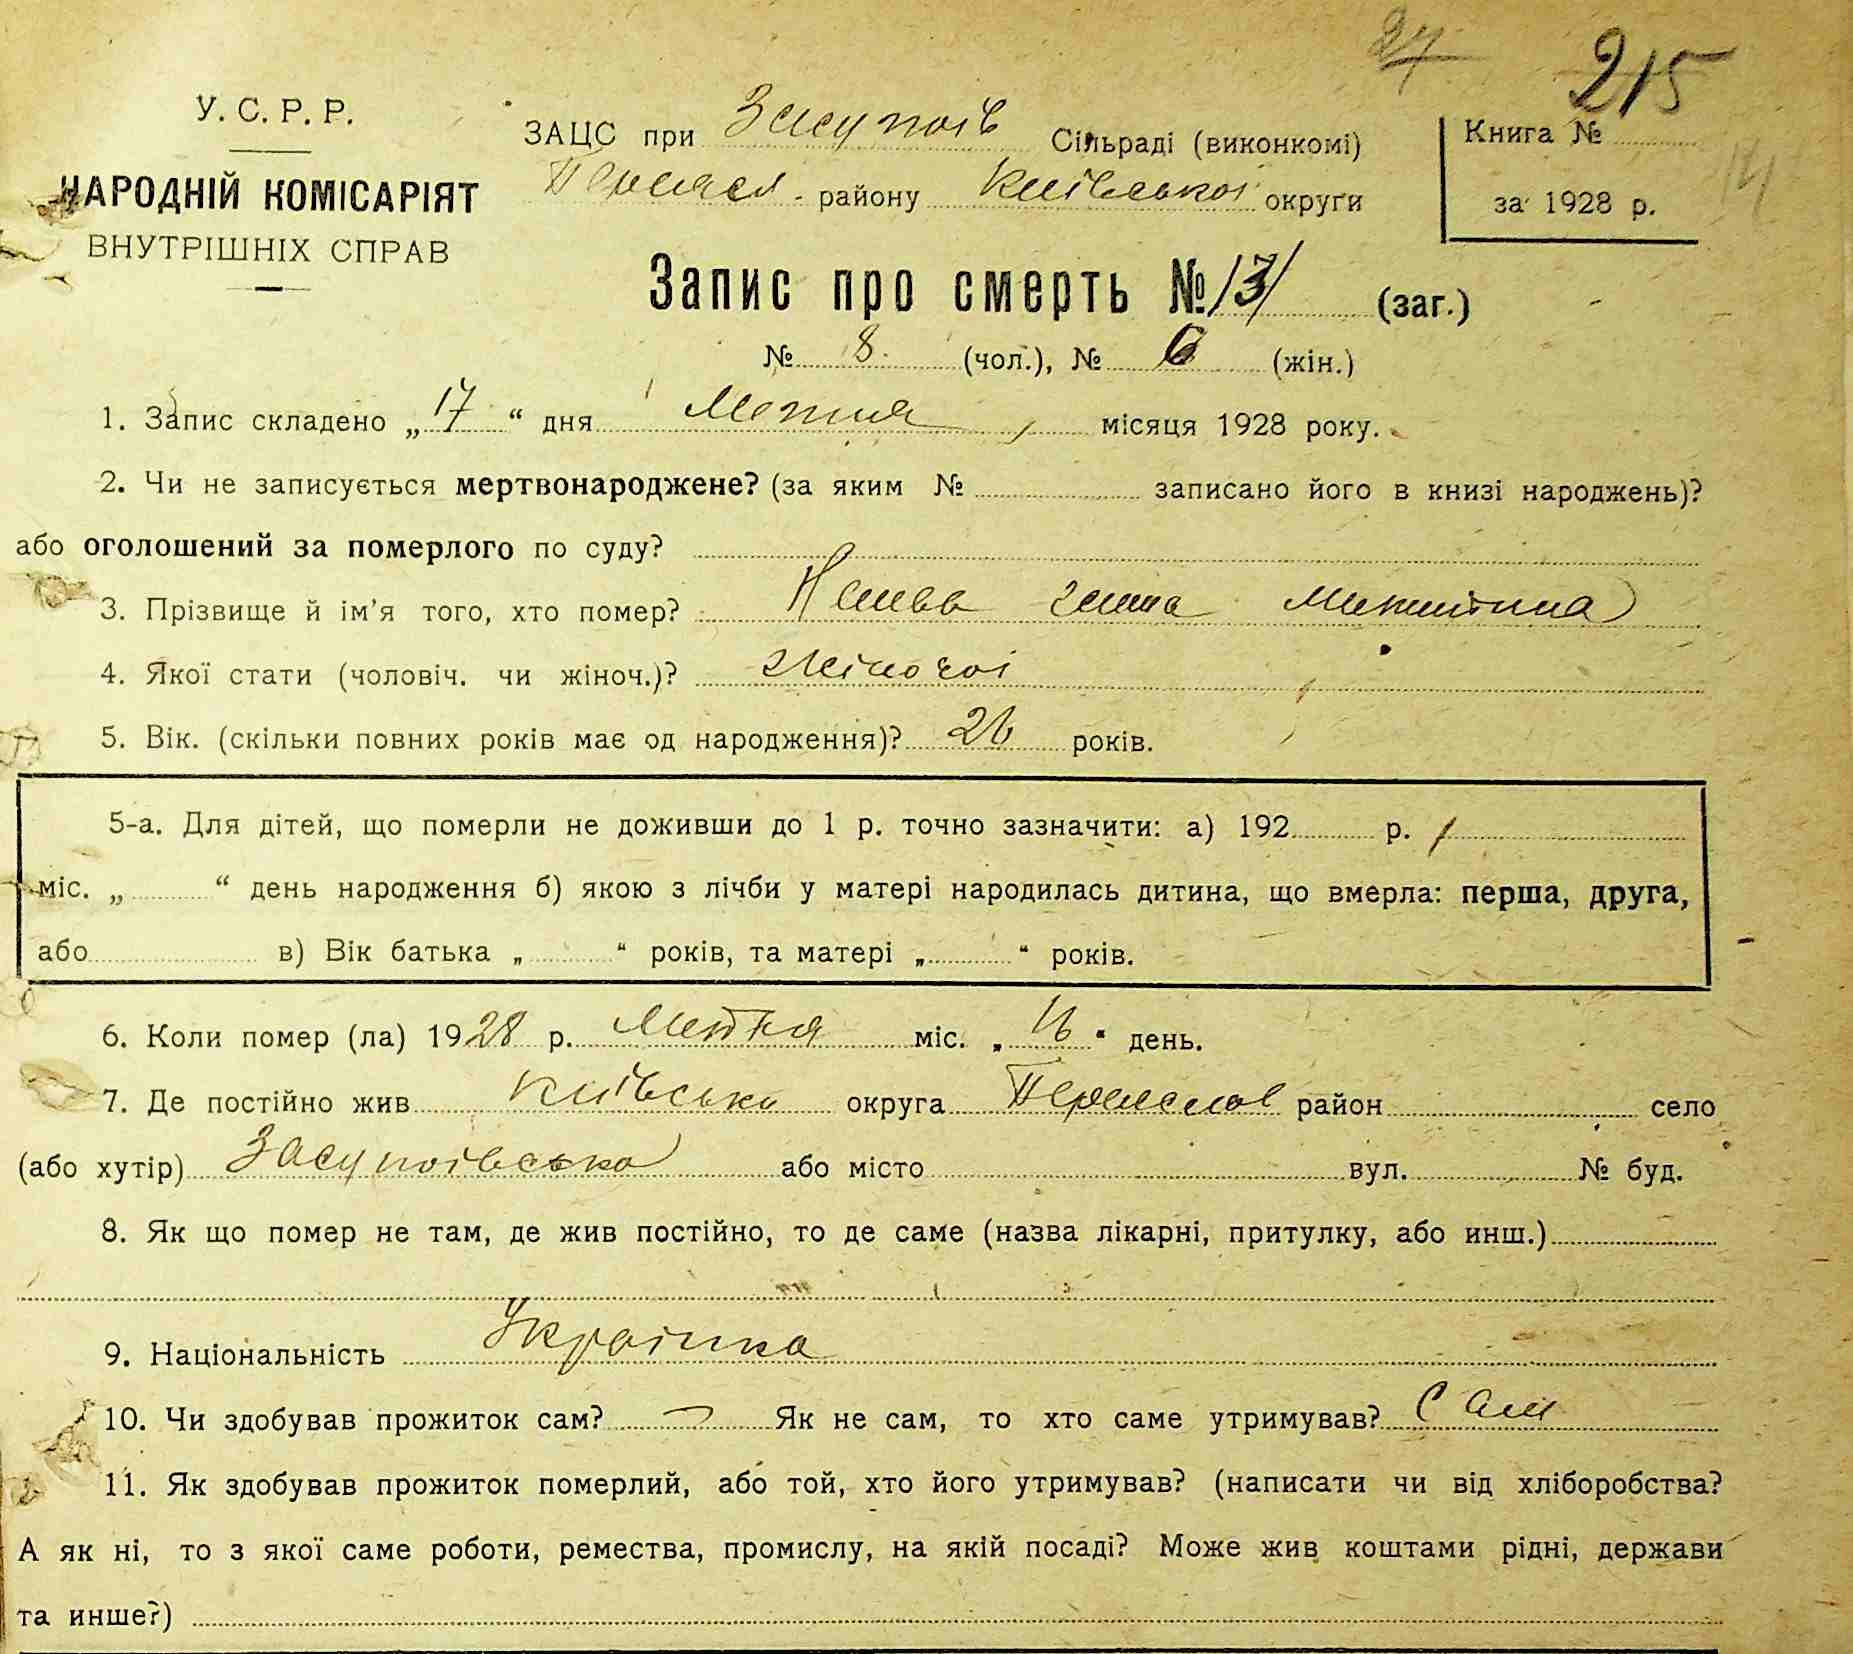 27 215
У. С. Р. Р.
НАРОДНІЙ КОМІСАРІЯТ
ВНУТРІШНІХ СПРАВ
ЗАЦС при Засупоїв Сільраді (виконкомі)
Переясл. району Київської округи
Книга №
за 1928 р.
Запис про смерть № (заг.)
№ 8 (чол.), № 6 (жін.)
1. Запис складено „17“ дня місяця 1928 року.
2. Чи не записується мертвонароджене? (за яким № записано його в книзі народжень)?
або оголошений за померлого по суду?
3. Прізвище й ім'я того, хто помер?
4. Якої стати (чоловіч. чи жіноч.)? жіночої
5. Вік. (скільки повних років має од народження)? 26 років.
5-а. Для дітей, що померли не доживши до 1 р. точно зазначити: а) 192 р.
міс. „ “ день народження б) якою з лічби у матері народилась дитина, що вмерла: перша, друга,
або в) Вік батька „ “ років, та матері „ “ років.
6. Коли помер (ла) 1928 р. міс. „16“ день.
7. Де постійно жив Київська округа район село
(або хутір) Засупоївська або місто вул. № буд.
8. Як що помер не там, де жив постійно, то де саме (назва лікарні, притулку, або инш.)
9. Національність Українка
10. Чи здобував прожиток сам? Як не сам, то хто саме утримував? Сам
11. Як здобував прожиток померлий, або той, хто його утримував? (написати чи від хліборобства?
А як ні, то з якої саме роботи, ремества, промислу, на якій посаді? Може жив коштами рідні, держави
та инше?)